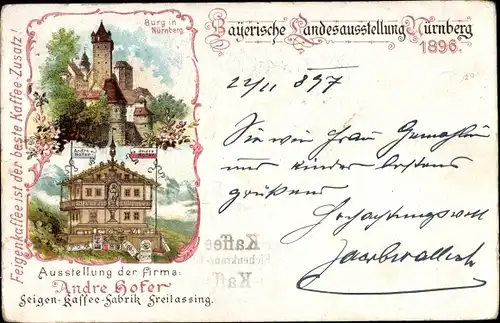 Bayerische Landesausstellung Nürnberg
1896.
Burg in
Nürnberg.
Feigenkaffee ist der beste Kaffee-Zusatz!
22/11 897
Sie wie Frau Gemahlin
und Kinder bestens
grüßend
Hochachtungsvoll
Andre
Hofer
Andre
Hofer
Kaffee
Ausstellung der Firma:
Andre Hofer
Feigen-Kaffee-Fabrik Freilassing.